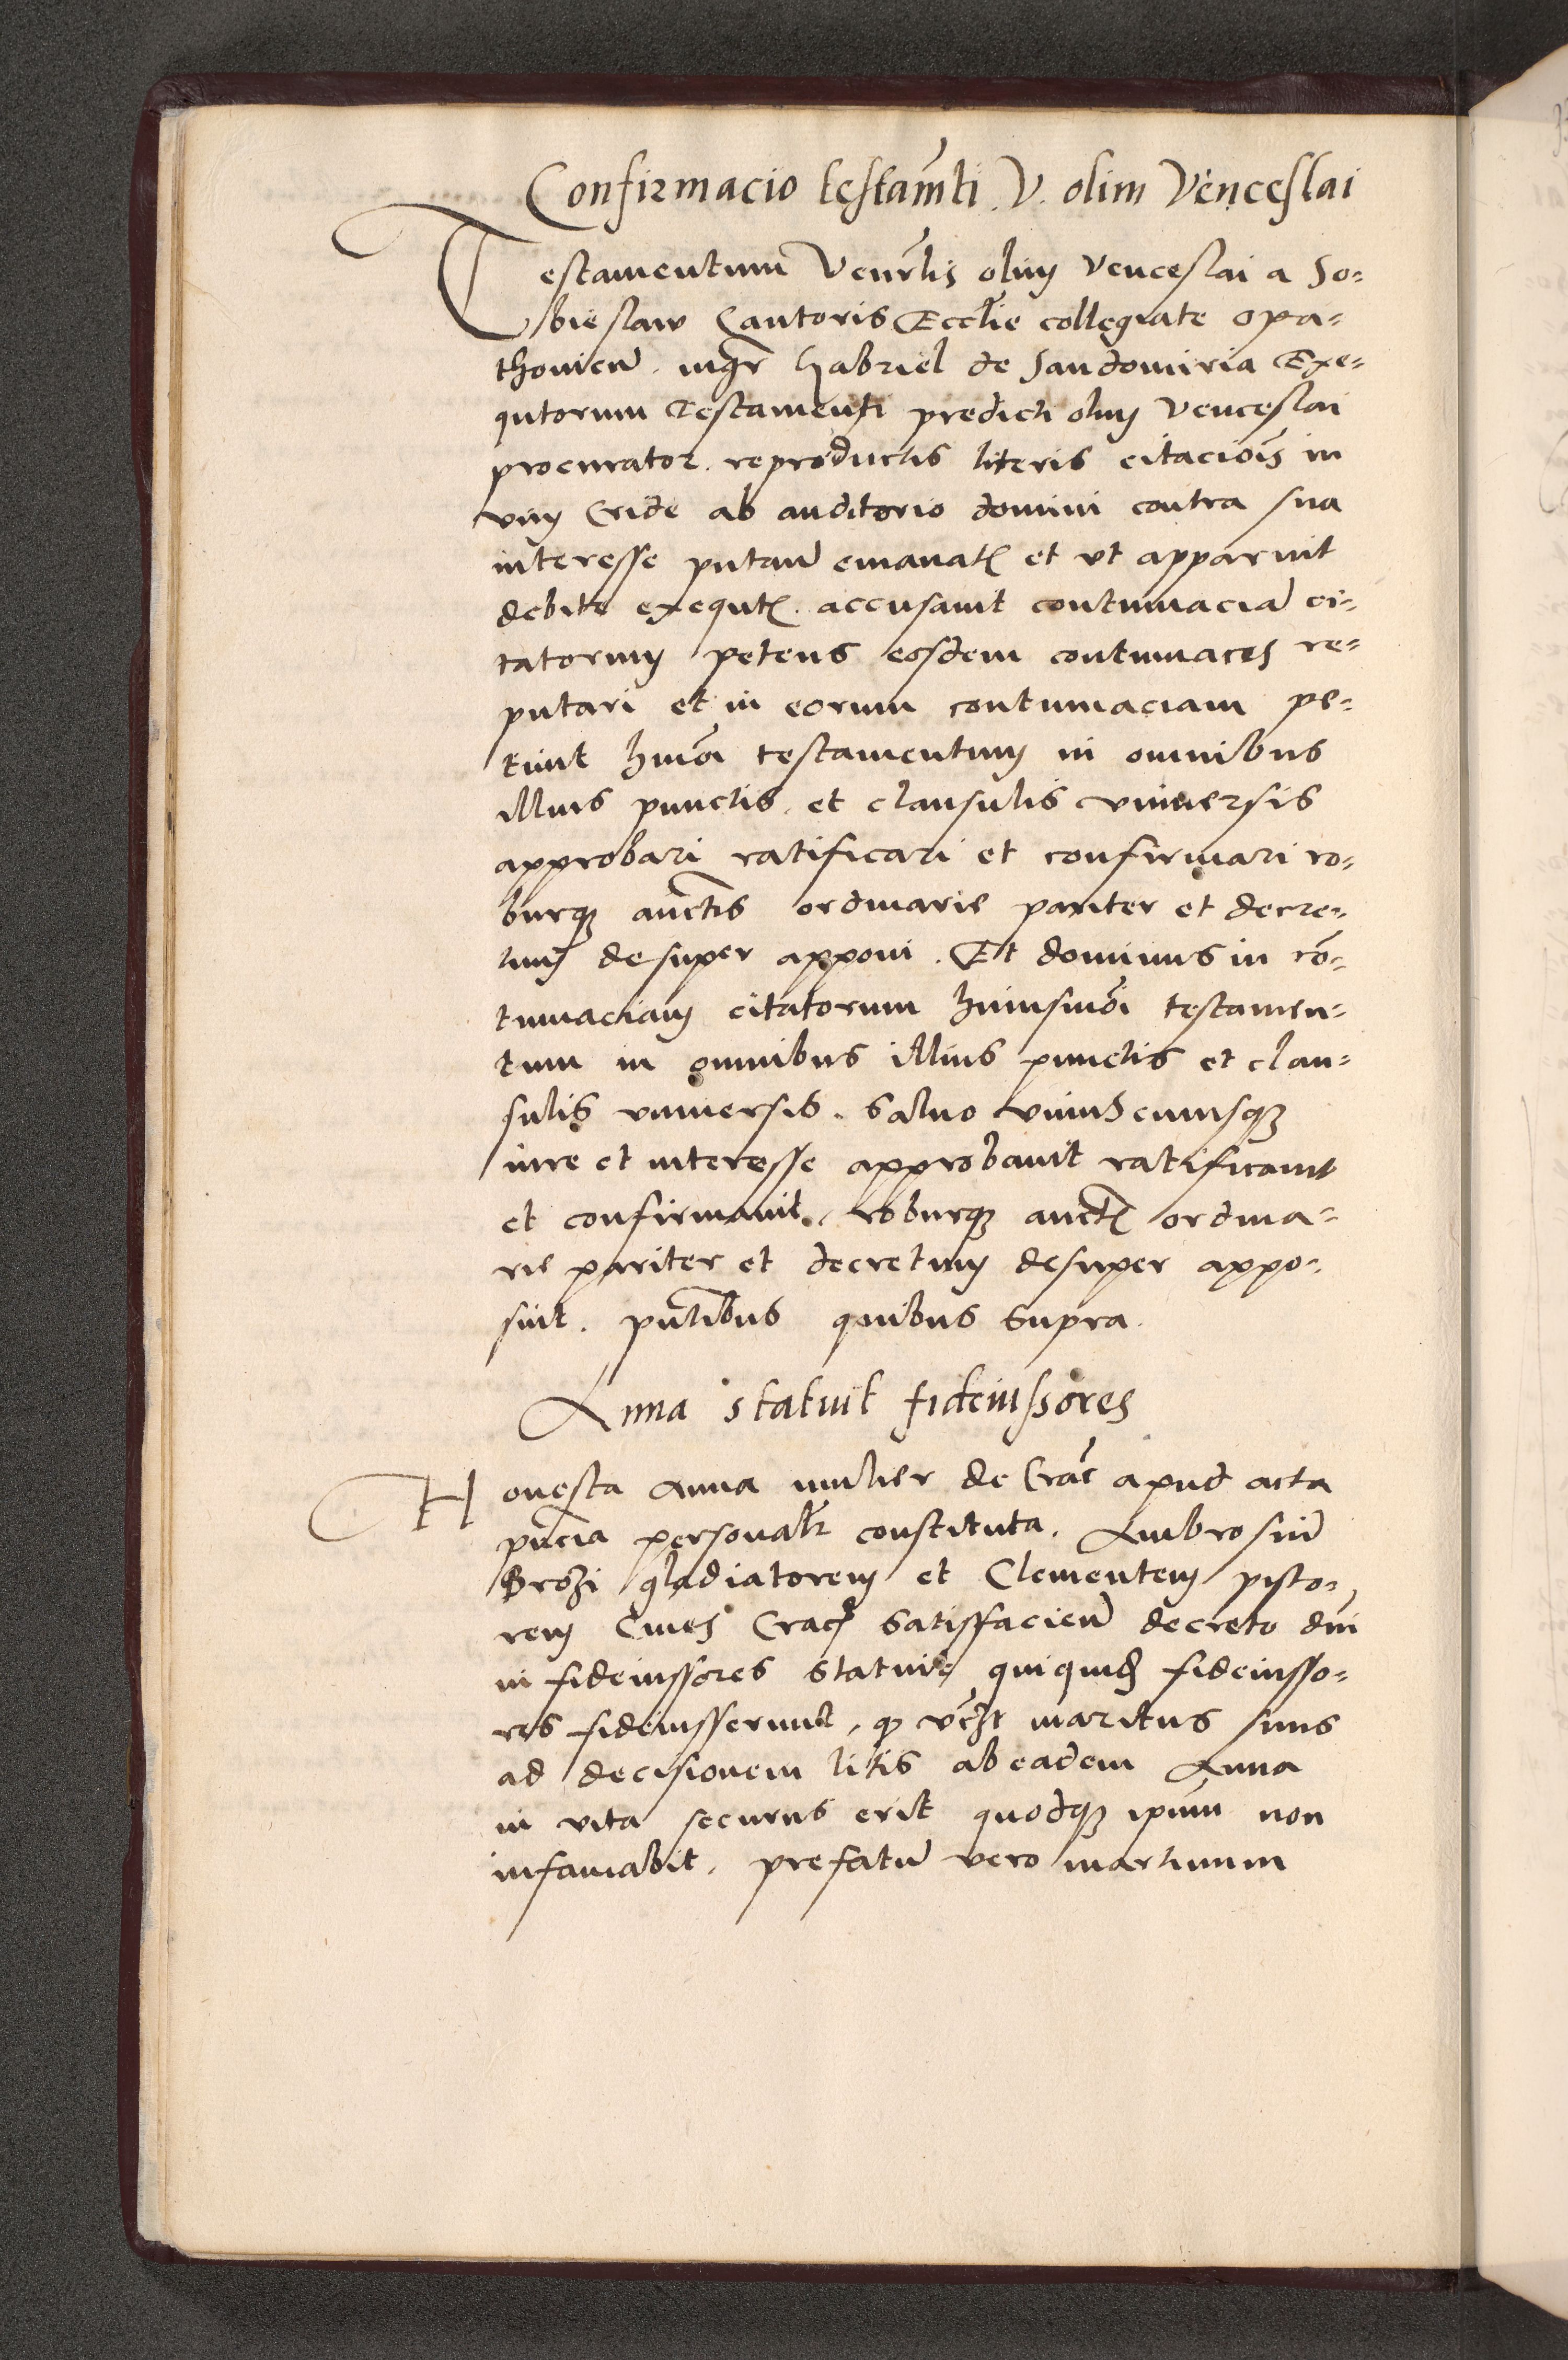 Confirmacio testam̃ti . V. olim Venceslai
Testamentum Venerl̃is olim Venceslai a So=
bieslaw Cantoris Eccl̃ie collegiate opa=
thoviеn̄ . mg̃r Gabriel de Sandomiria Exe=
qutorum Testamenti predicti olim Venceslai
procurator . reproductis literis citaciõis in
vim Cride ab auditorio domini contra sua
interesse putan̄ emanat̃ et vt apparuit
debite exequt̃ . accusavit contumaciā ci=
tatorum petens eosdem contumaces re=
putari et in eorum contumaciam pe=
tiuit hmõi testamentum in omnibus
illius punctis . et clausulis vniuersis
approbari ratificari et confirmari ro=
burq₃ auctt̃is ordinarie pariter et decre=
tum desuper apponi . Et dominus in cõ=
tumaciam citatorum huiusmõi testamen=
tum in omnibus illius punctis et clau=
sulis vniuersis . Saluo vniuscuiusq₃
iure et interesse approbauit ratificauit
et confirmauit . roburq₃ auctt̃ ordina=
rie pariter et decretum desuper appo=
suit . pñtibus quibus supra .
Anna statuit fideiussores
Honesta Anna mulier de Crac̃ apud acta
pñcia personalr̃ constituta . Ambrosiū
Brozi gladiatorem et Clementem pisto=
rem Ciues Crac̃ Satisfaciеn̄ decreto dñi
in fideiussores statuit quiquid̃ fideiusso=
res fideiusserunt . q₃ vcz̃t maritus suus
ad decisionem litis ab eadem Anna
in vita securus erit quodq₃ ipsum non
infamabit . prefatū vero martinum